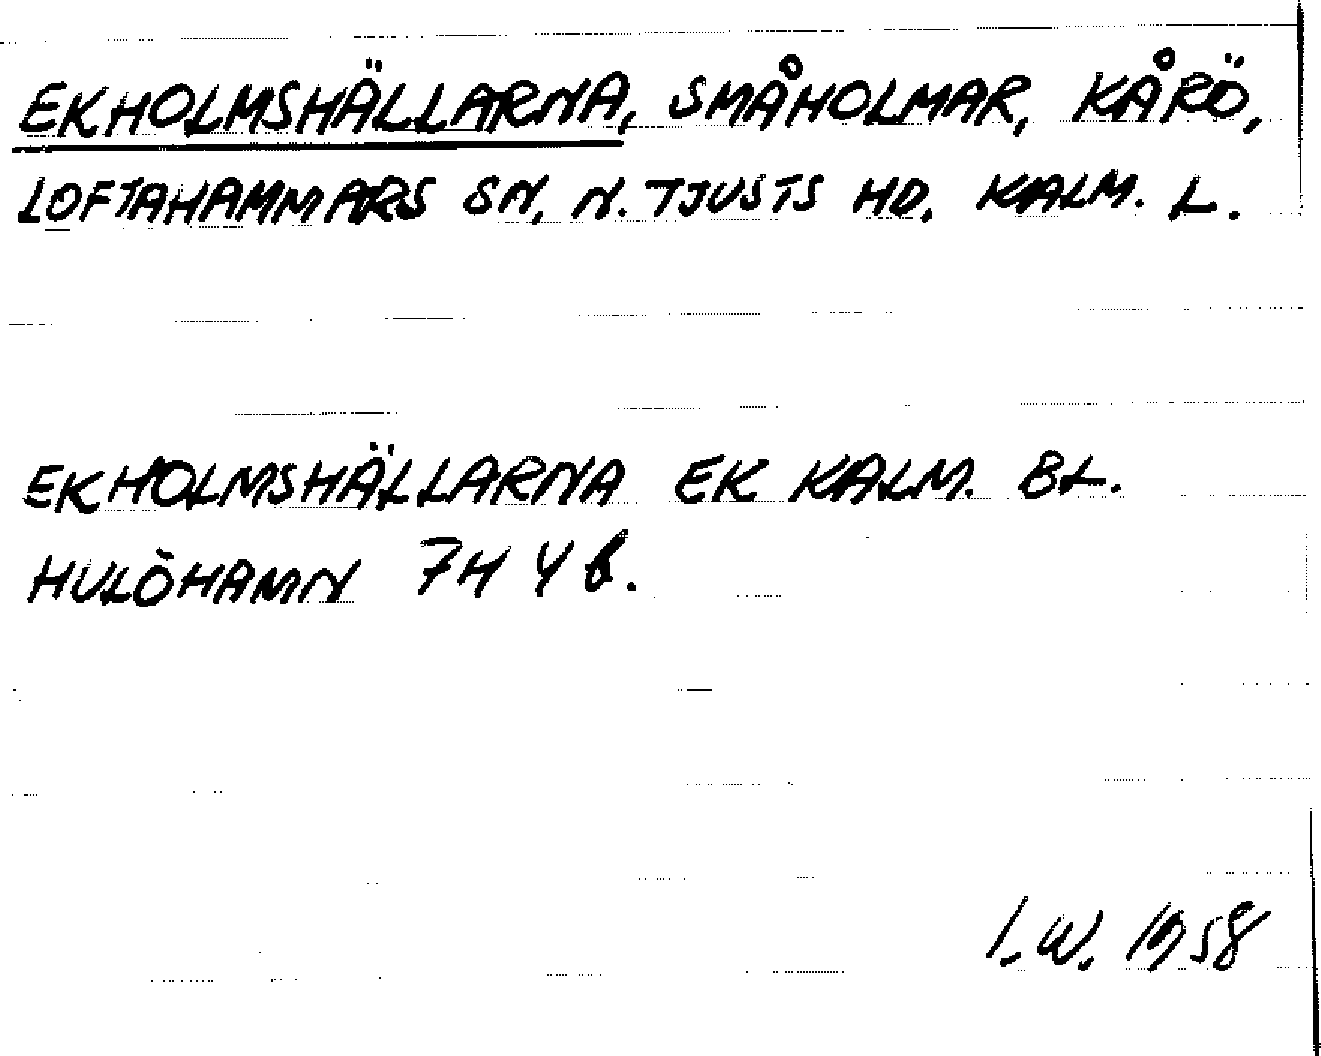 EKHOLMSHÄLLARNA, SMÅHOLMAR, KÅRÖ,
LOFTAHAMMARS SN, N. TJUSTS HD. KALM. L.
EKHOLMSHÄLLARNA EK KALM. BL.
HULÖHAMN 7H 4 b.
I.W. 1958